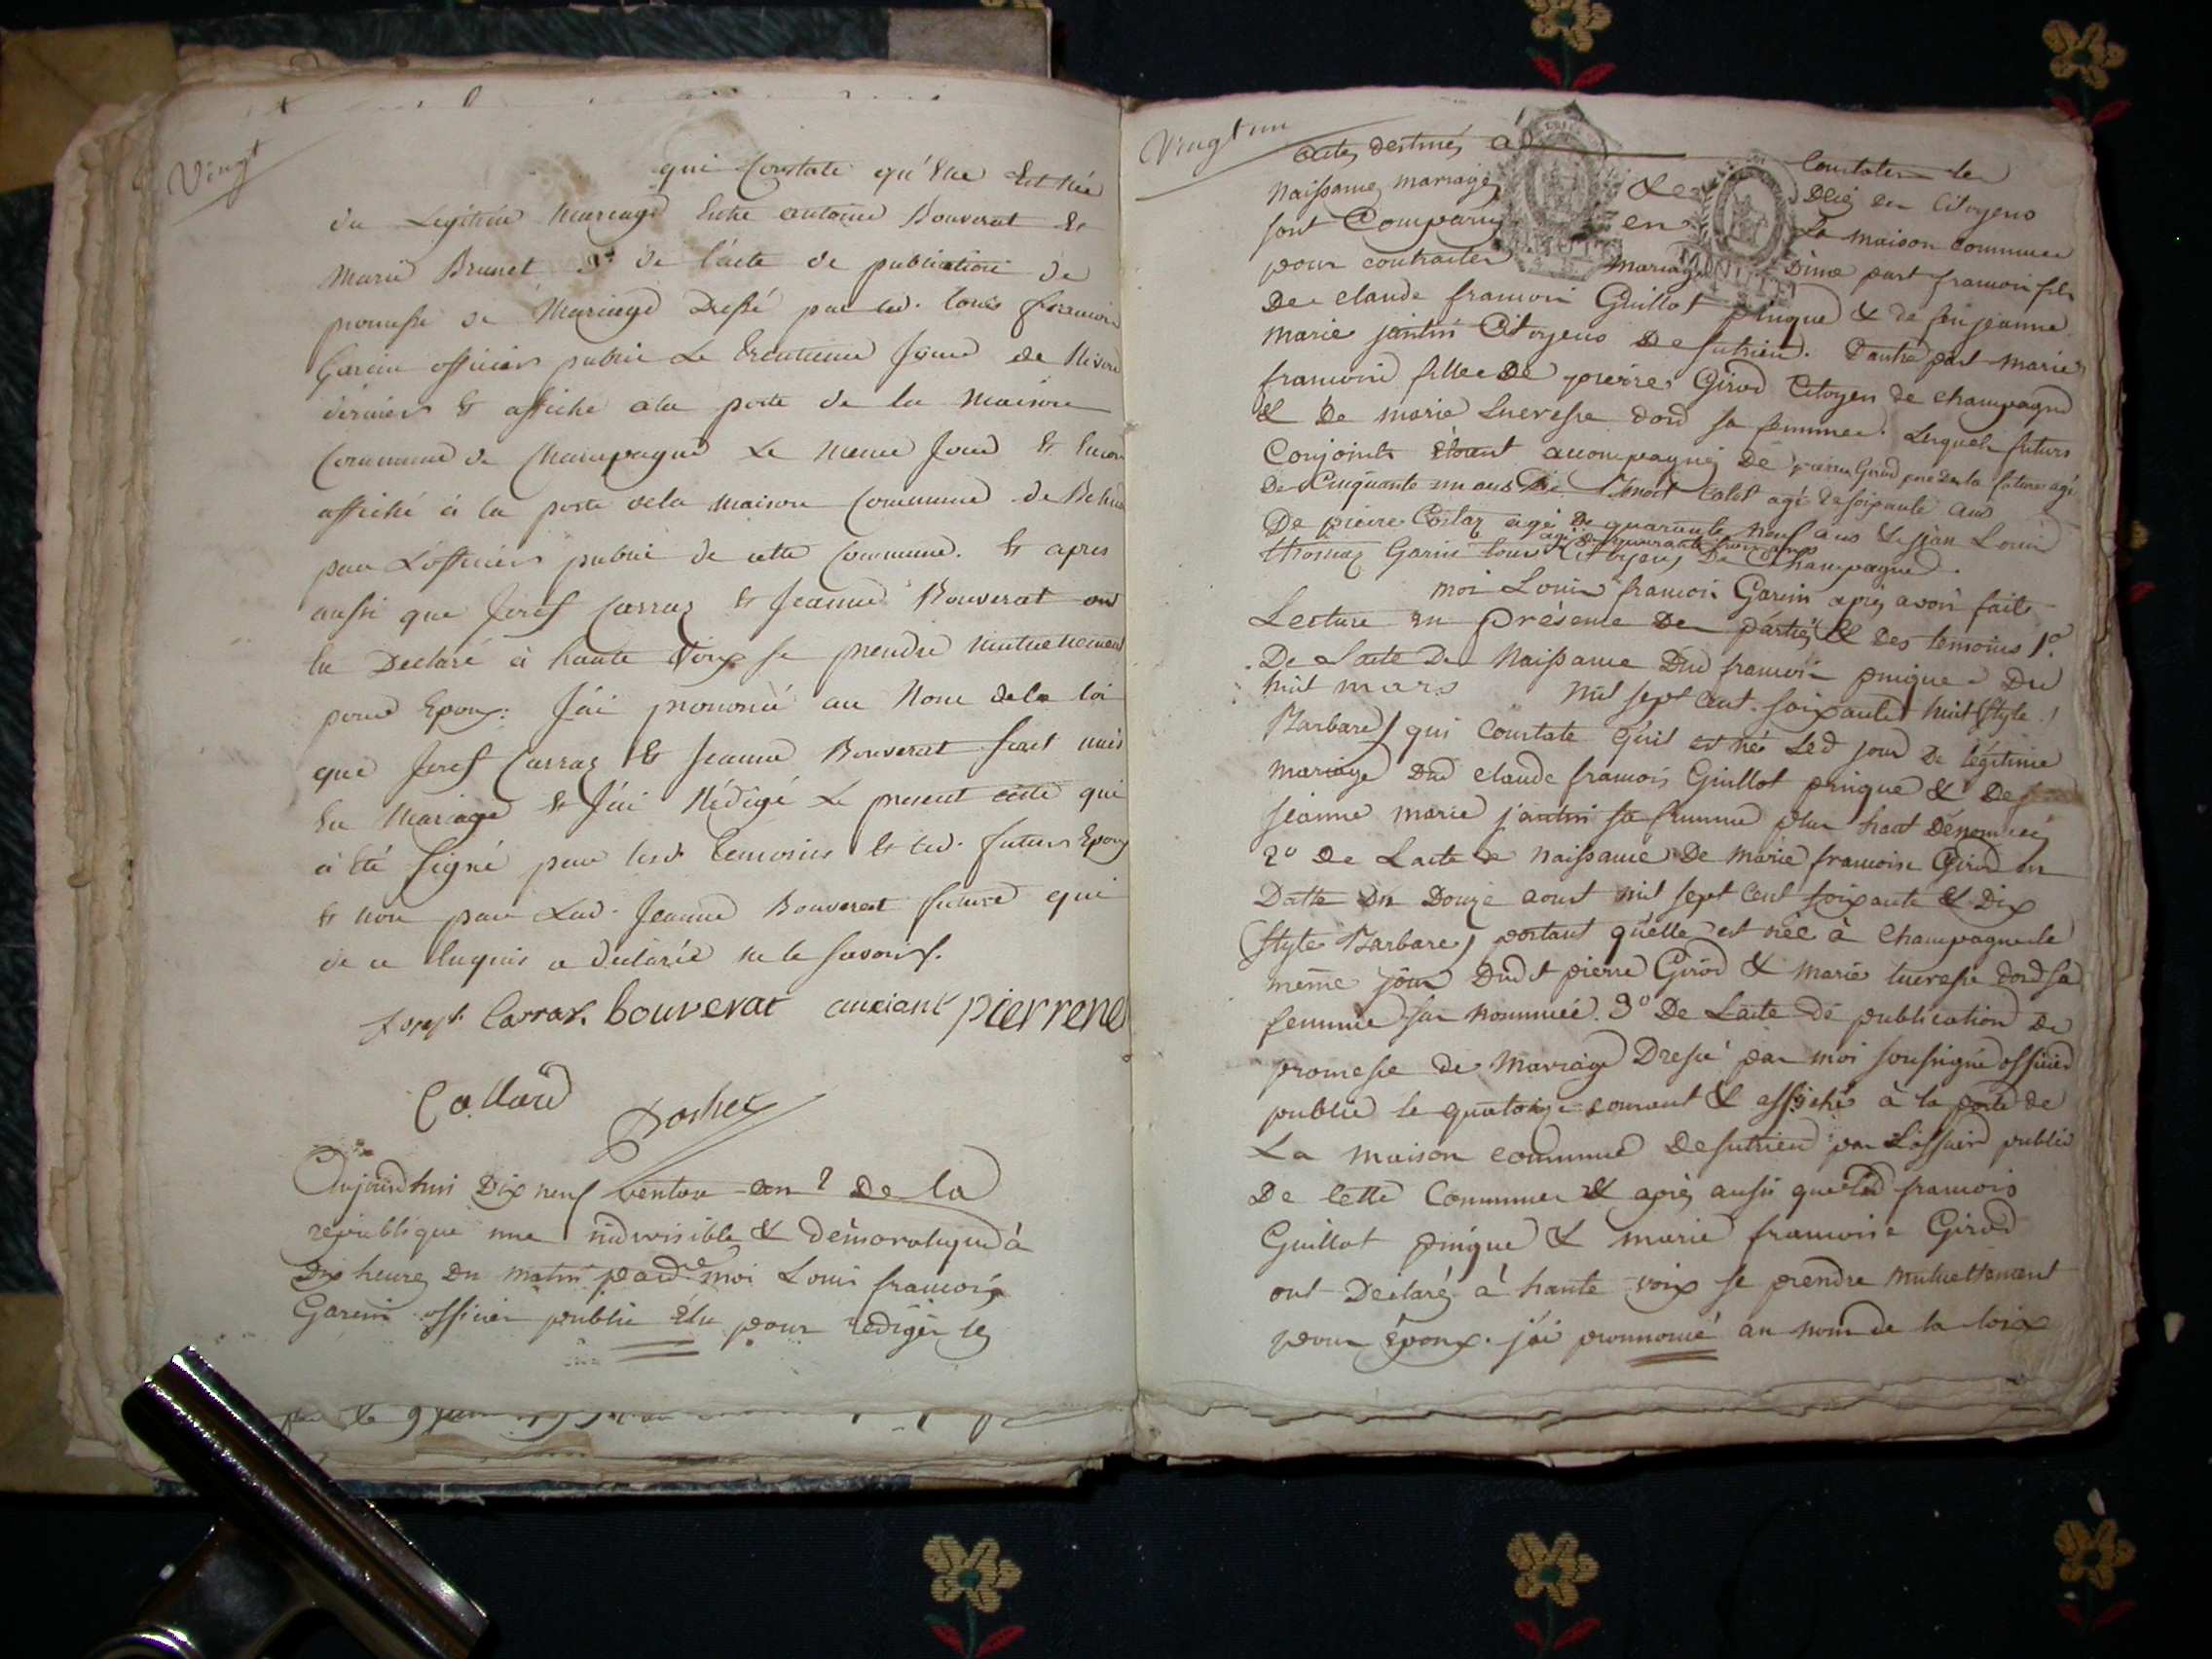 Vingt
qui Constate qu'Elle Est née
du Legitime Mariage Entre antoine Bouverat &
Marie Brunet 3º de l'acte de publication de
promesse de Mariage Dressé par led. Louis françois
Garin officier public Le trentieme Jour de Nivose
dernier & affiché a la porte de la Maison
Commune de Champagne Le meme Jour & Encore
affiché à la porte de la maison Commune de
par L'officier public de cette Commune. & apres
aussi que Josef Carraz & Jeanne Bouverat ont
Eu Declaré à haute Voix se prendre mutuellement
pour Epoux: J'ai prononcé au Nom de la loi
que Josef Carraz & Jeanne Bouverat sont unis
En Mariage & J'ai Rédigé Le present acte qui
à été signé par lesd. temoins & led. futur Epoux
& non par Lad. Jeanne Bouverat future qui
de ce Enquis a declarée ne le savoir.
Joseph Carraz bouverat anciant pierrene
Collard
Aujourdhui Dix neuf ventose an 2 De la
république une indivisible & démocratique à
Dix heures Du matin pard. moi Louis françois
Garin officier public Elu pour rediger les
Vingt un
actes destinés à Constater les
Naissances mariages & Décès des Citoyens
sont Comparus en La maison commune
pour contracter mariage D'une part françois fils
De claude françois Guillot pingue & de feu jeanne
marie jantin Citoyens De sutrieu. D'autre part marie
françoise fille De pierre Girod Citoyen de champagne
& De marie Lucresse dord sa femme. Lesquels futurs
Conjoints étant accompagnés De pierre Girod pere de la future agé
De Cinquante un ans De Colet agé de soixante ans
De pierre Costaz agé De quarante neuf ans & jean Louis
agé de quarante trois ans
thomas Garin tous Citoyens De Champagne.
moi Louis françois Garin après avoir fait
Lecture en présence Des parties & Des temoins 1.º
De Lacte De Naissance Dud françois pingue Du
huit mars mil sept cent soixante huit (style
Barbare) qui Constate qu'il est né Led jour De légitime
mariage Dud claude françois Guillot pingue & De feu
jeanne marie jantin sa femme plus haut Dénommés
2º De Lacte de naissance De marie françoise Girod en
Datte Du Douze aoust mil sept cent soixante & Dix
(style Barbare) portant qu'elle est née à Champagne le
même jour Dudt pierre Girod & marie lucresse dord sa
femme sus nommée. 3º De Lacte de publication De
promesse de Mariage Dressé par moi soussigné officier
public le quatorze courant & affiché à la porte de
La maison commune De sutrieu par L'officier public
De Cette Commune & après aussi que led françois
Guillot pingue & marie françoise Girod
ont Déclaré à haute voix se prendre mutuellement
pour époux. j'ai prononcé au nom de la loix